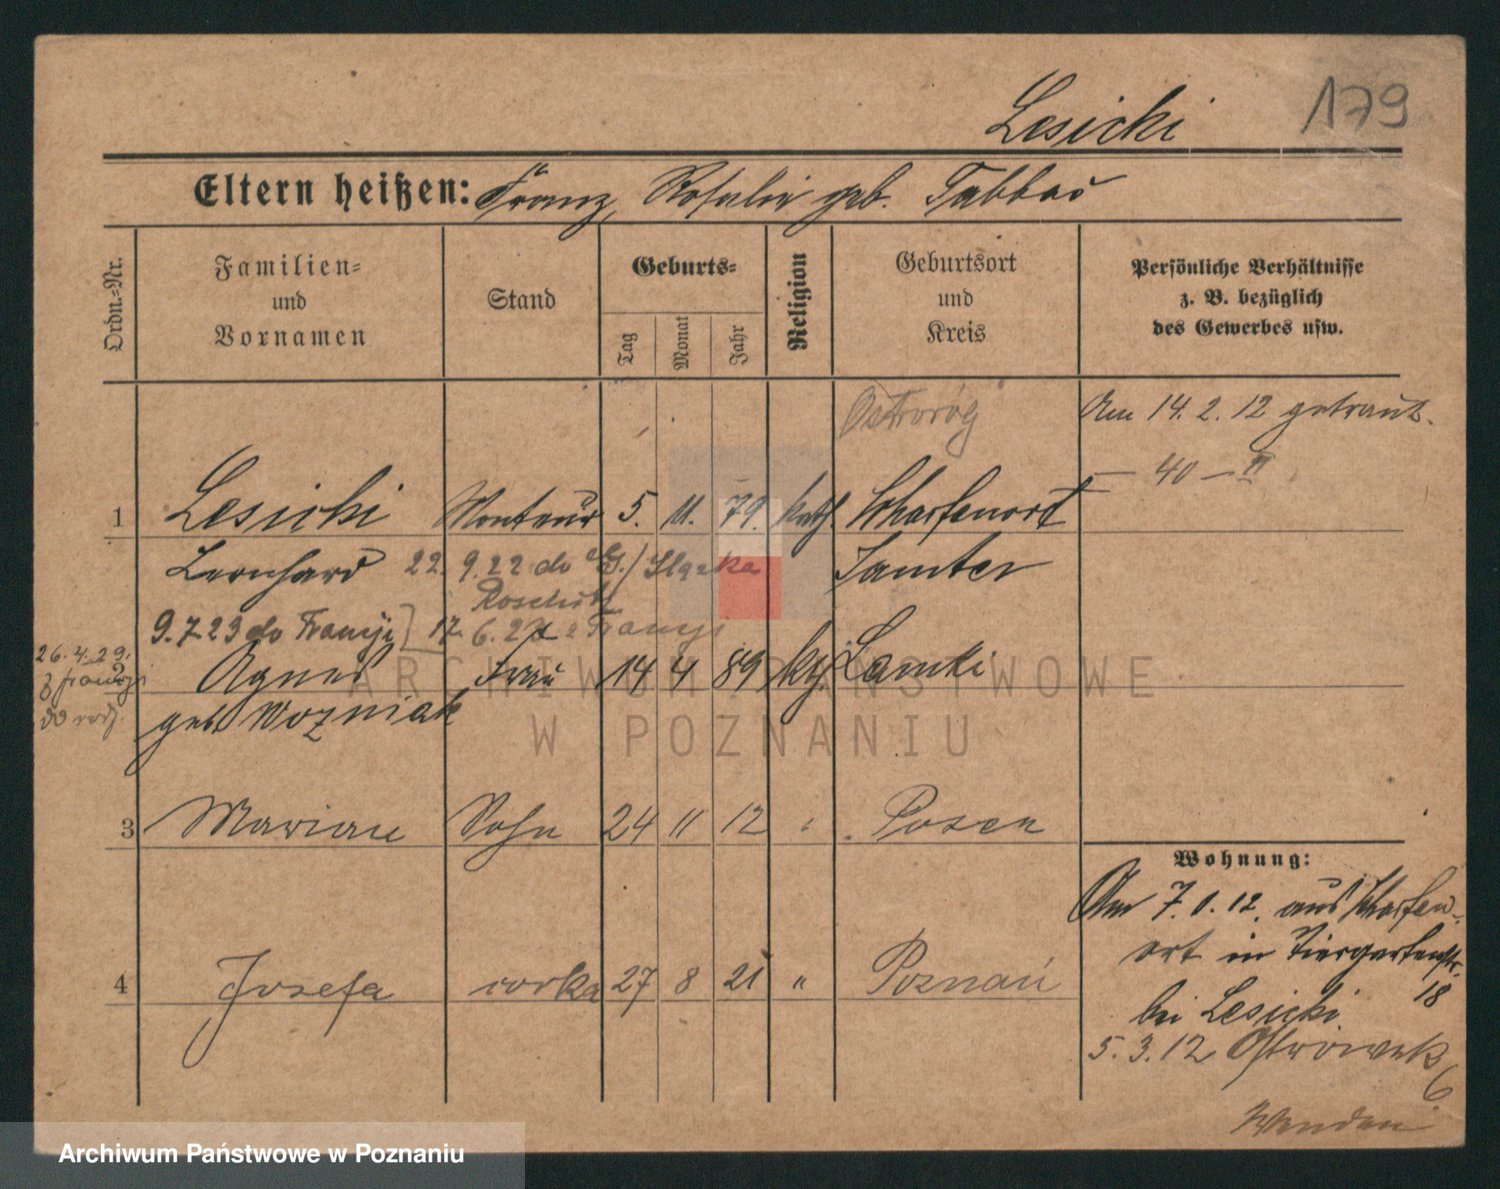 Lesicki 179
Eltern heißen: Franz, Rosalie geb.
Ordn.-Nr.
Familien-
und
Vornamen
Stand
Geburts-
Tag
Monat
Jahr
Religion
Geburtsort
und
Kreis
Persönliche Verhältnisse
z. B. bezüglich
des Gewerbes usw.
Ostroróg
Am 14. 2. 12 getraut.
— 40 — II
1 Lesicki Monteur 5. 11. 79. kath. Scharfenort
Leonhard 22. 9. 22 do Śląska Samter
9. 7 23 do Francji 17. 6. 23 z Francji
26. 4. 29.
z Francji
do
Agnes Frau 14 4 89 Lamki
geb. Wozniak
3 Marian Sohn 24 11 12 Posen
4 Josefa córka 27 8 21 " Poznań
Wohnung:
Am 7. 1. 12. aus Scharfen-
ort in Tiergartenstr.
18
bei Lesicki
5. 3. 12 Ostrówek
6
Wenden
ARCHIWUM PAŃSTWOWE
W POZNANIU
Archiwum Państwowe w Poznaniu